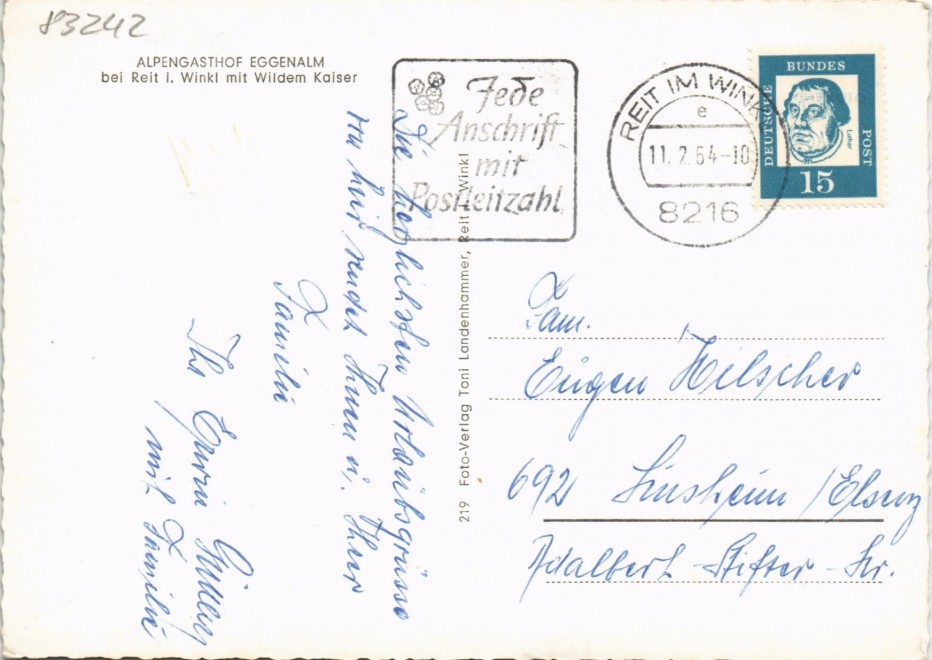 83242
ALPENGASTHOF EGGENALM
bei Reit i. Winkl mit Wildem Kaiser
Jede
Anschrift
mit
Postleitzahl
REIT IM WINKL
e
11.2.64-10
8216
DEUTSCHE BUNDES POST
Luther
15
Die herzlichsten Urlaubsgrüsse
von hier sendet Ihnen u. Ihrer
Familie
Ihr Erwin
mit Familie
219 Foto-Verlag Toni Landenhammer, Reit i. Winkl
Fam.
Eugen Hilscher
692 Sinsheim/Elsenz
Adalbert-Stifter-Str.